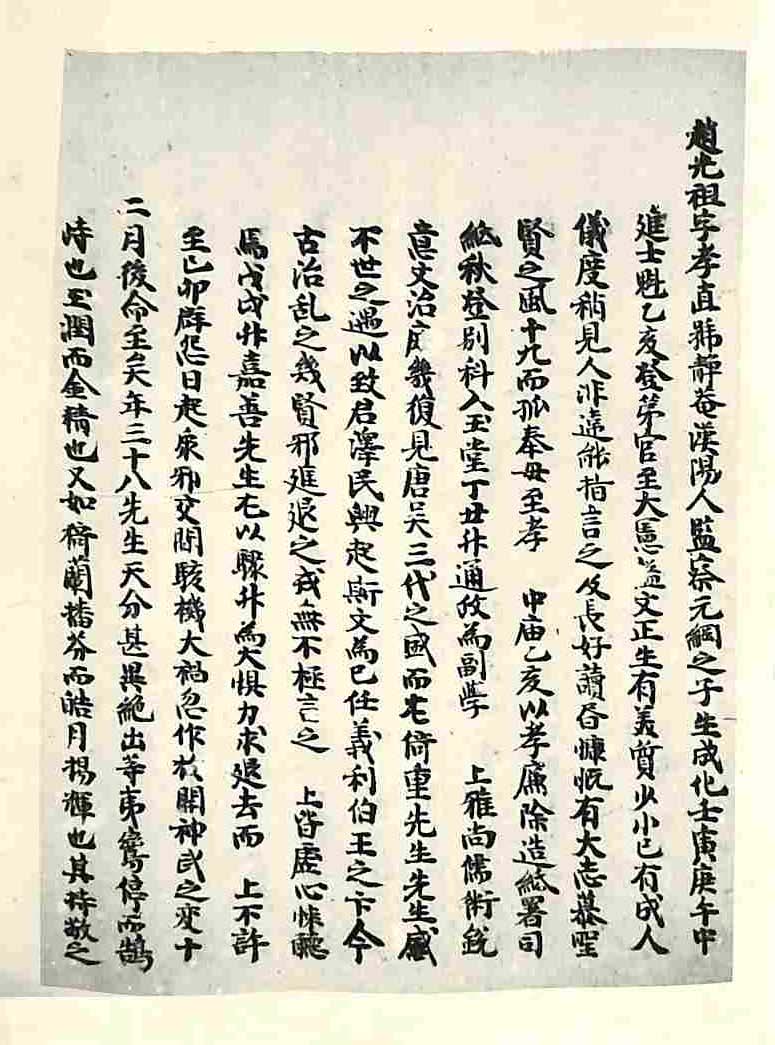 趙光祖字孝直號靜菴漢陽人監察元綱之子生成化壬寅庚午中
進士魁乙亥登第官至大憲謚文正生有美質少小已有成人
儀度稍見人非違能指言之及長好讀書慷慨有大志慕聖
賢之風十九而孤奉母至孝 中庙乙亥以孝廉除造紙署司
紙秋登別科入玉堂丁丑升通政為副學 上雅尚儒術銳
意文治庶幾復見唐吴三代之盛而尤倚重先生先生感
不世之遇以致君澤民興起斯文為已任義利伯王之卞今
古治乱之幾賢邪進退之戒無不極言之 上皆虛心悚聽
焉戊戌升嘉善先生尤以驟升為大惧力求退去而 上不許
至己卯群怨日起衆邪交閧駭機大禍忽作於開神武之变十
二月後命至矣年三十八先生天分甚異絶出等夷鸞停而鵠
峙也玉潤而金精也又如猗蘭播芬而皓月揚輝也其持敬之